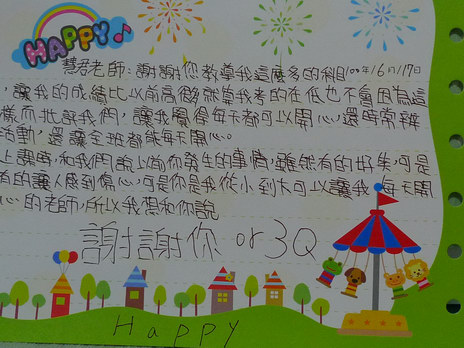 HAPPY
慧君老師:謝謝你教導我這麼多的科目100年6月17日
,讓我的成績比以前高很多就算我考的在低也不會因為這
樣而批評我們,讓我覺得每天都可以開心,還時常辦
活動,還讓全班都能每天開心。
上課時,和我們說以前你發生的事情,雖然有的好笑,可是
有的讓人感到傷心,可是你是我從小到大可以讓我每天開
心的老師,所以我想和你說
謝謝你 or 3Q
Happy